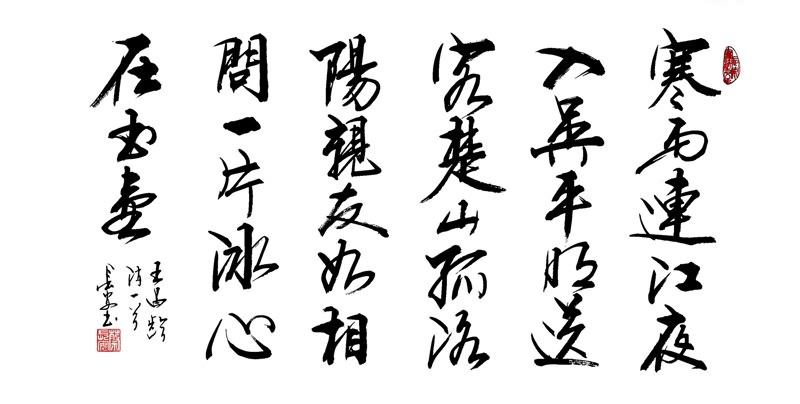 寒雨連江夜
入吳平明送
客楚山孤洛
陽親友如相
問一片冰心
在玉壺
王昌齡
詩一首